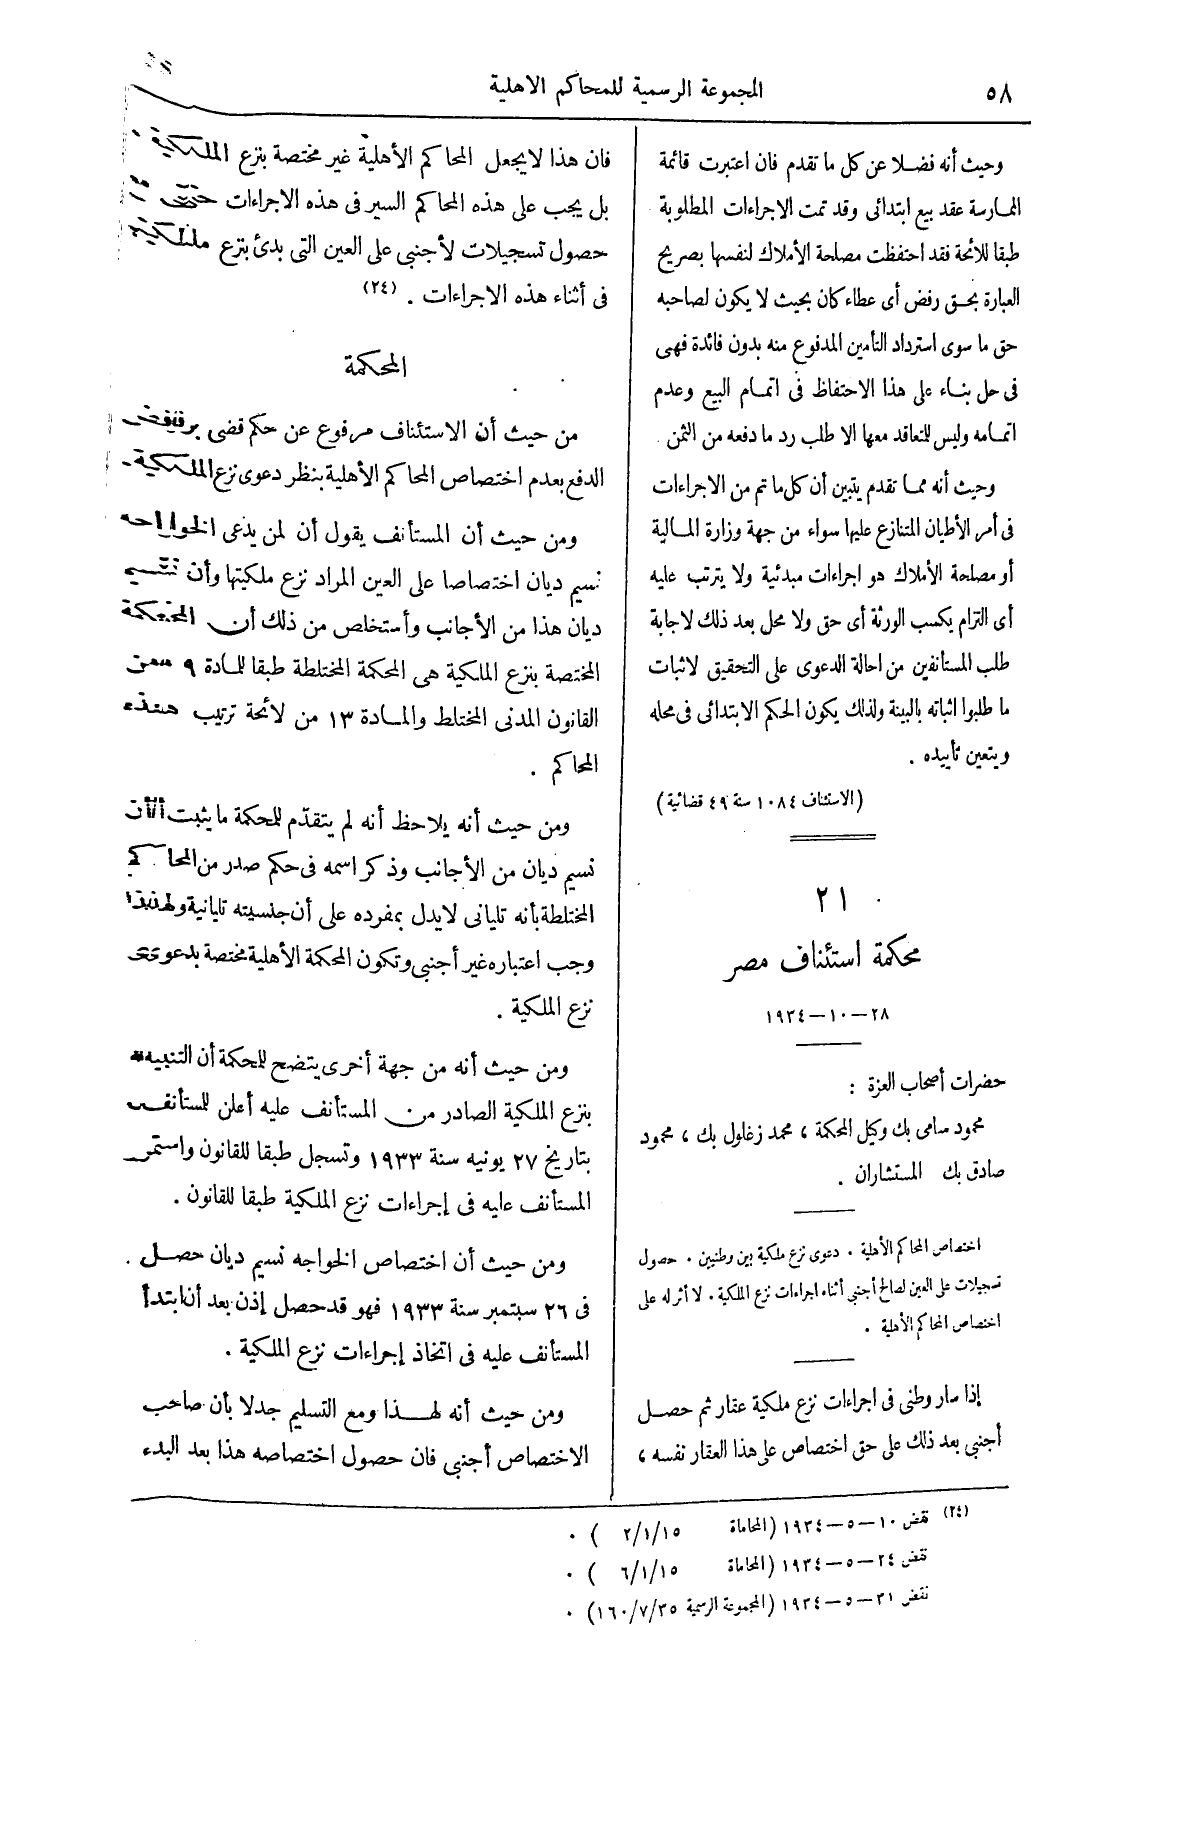 ٥٨
المجموعة الرسمية للمحاكم الاهلية
وحيث أنه فضلا عن كل ما تقدم فان اعتبرت قائمة
الممارسة عقد بيع ابتدائى وقد تمت الاجراءات المطلوبة
طبقا للائحة فقد احتفظت مصلحة الأملاك لنفسها بصريح
العبارة بحق رفض أى عطاء كان بحيث لا يكون لصاحبه
حق ما سوى استرداد التأمين المدفوع منه بدون فائدة فهى
فى حل بناء على هذا الاحتفاظ فى اتمام البيع وعدم
اتمامه وليس للتعاقد معها الا طلب رد ما دفعه من الثمن .
وحيث أنه مما تقدم يتبين أن كل ما تم من الاجراءات
فى أمر الأطيان المتنازع عليها سواء من جهة وزارة المالية
أو مصلحة الأملاك هو اجراءات مبدئية ولا يترتب عليه
أى التزام يكسب الورثة أى حق ولا محل بعد ذلك لاجابة
طلب المستأنفين من احالة الدعوى على التحقيق لاثبات
ما طلبوا اثباته بالبينة ولذلك يكون الحكم الابتدائى فى محله
ويتعين تأييده .
(الاستئناف ١٠٨٤ سنة ٤٩ قضائية)
٢١
محكمة استئناف مصر
٢٨-١٠-١٩٣٤
حضرات أصحاب العزة :
محمود سامى بك وكيل المحكمة ، محمد زغلول بك ، محمود
صادق بك المستشاران .
اختصاص المحاكم الأهلية . دعوى نزع ملكية بين وطنيين . حصول
تسجيلات على العين لصالح أجنبى أثناء اجراءات نزع الملكية . لا أثر له على
اختصاص المحاكم الأهلية .
إذا سار وطنى فى اجراءات نزع ملكية عقار ثم حصل
أجنبى بعد ذلك على حق اختصاص على هذا العقار نفسه ،
فان هذا لا يجعل المحاكم الأهلية غير مختصة بنزع الملكية
بل يجب على هذه المحاكم السير فى هذه الاجراءات
حصول تسجيلات لأجنبى على العين التى بدئ بنزع ملكيتها
فى أثناء هذه الاجراءات . (٢٤)
المحكمة
من حيث أن الاستئناف مرفوع عن حكم قضى برفض
الدفع بعدم اختصاص المحاكم الأهلية بنظر دعوى نزع الملكية .
ومن حيث أن المستأنف يقول أن لمن يدعى الخواجه
نسيم ديان اختصاصا على العين المراد نزع ملكيتها وأن نسيم
ديان هذا من الأجانب وأستخلص من ذلك أن المحكمة
المختصة بنزع الملكية هى المحكمة المختلطة طبقا للمادة ٩ من
القانون المدنى المختلط والمادة ١٣ من لائحة ترتيب هذه
المحاكم .
ومن حيث أنه يلاحظ أنه لم يتقدّم للمحكمة ما يثبت أن
نسيم ديان من الأجانب وذكر اسمه فى حكم صدر من المحاكم
المختلطة بأنه تليانى لا يدل بمفرده على أن جنسيته تليانية ولهذا
وجب اعتباره غير أجنبى وتكون المحكمة الأهلية مختصة بدعوى
نزع الملكية .
ومن حيث أنه من جهة أخرى يتضح للمحكمة أن التنبيه
بنزع الملكية الصادر من المستأنف عليه أعلن للمستأنف
بتاريخ ٢٧ يونيه سنة ١٩٣٣ وتسجل طبقا للقانون واستمر
المستأنف عليه فى إجراءات نزع الملكية طبقا للقانون .
ومن حيث أن اختصاص الخواجه نسيم ديان حصل
فى ٢٦ سبتمبر سنة ١٩٣٣ فهو قد حصل إذن بعد أن ابتدأ
المستأنف عليه فى اتخاذ إجراءات نزع الملكية .
ومن حيث أنه لهذا ومع التسليم جدلا بأن صاحب
الاختصاص أجنبى فان حصول اختصاصه هذا بعد البدء
(٢٤) نقض ١٠-٥-١٩٣٤ (المحاماة ٢/١/١٥) .
نقض ٢٤-٥-١٩٣٤ (المحاماة ٦/١/١٥) .
نقض ٣١-٥-١٩٣٤ (المجموعة الرسمية ١٦٠/٧/٣٥) .